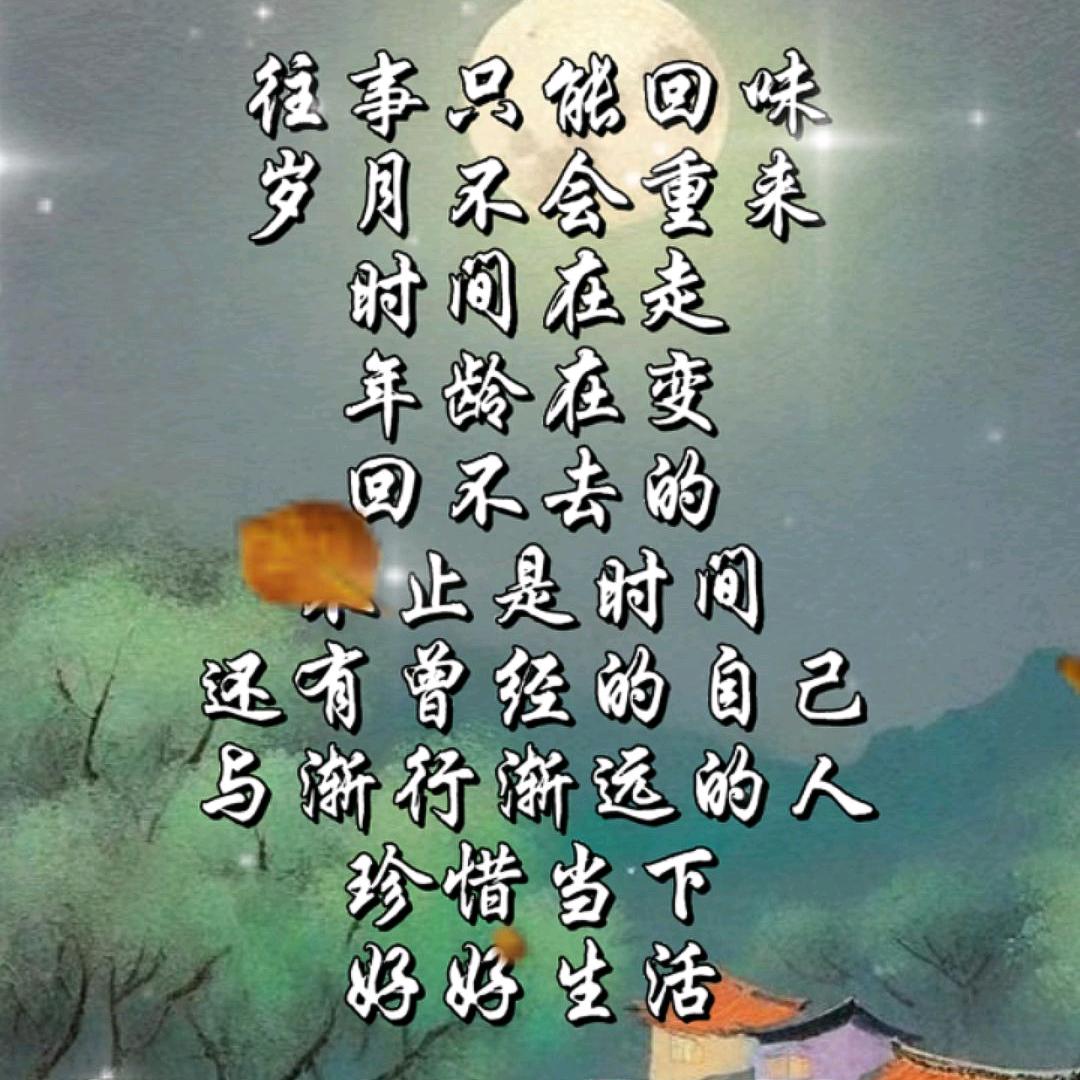 往事只能回味
岁月不会重来
时间在走
年龄在变
回不去的
不止是时间
还有曾经的自己
与渐行渐远的人
珍惜当下
好好生活